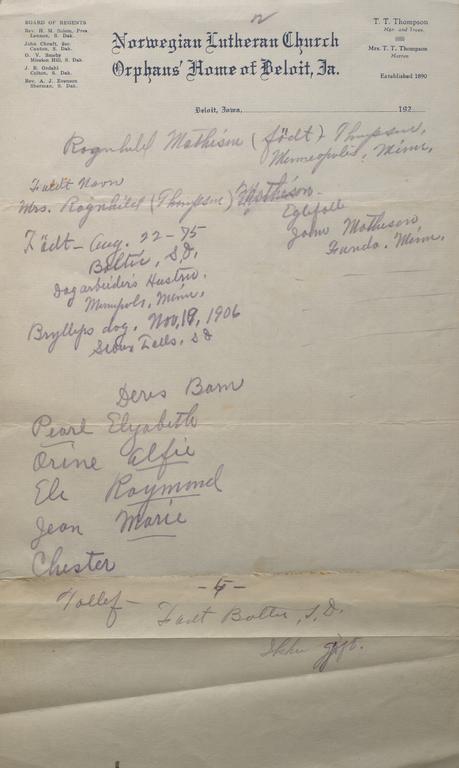 BOARD OF REGENTS
Rev. H. M. Solem, Pres
Lennox, S. Dak.
John Chraft, Sec
Canton, S. Dak.
O. V.
Mission Hill, S. Dak
J. R. Ordahl
Colton, S. Dak.
Rev. A. J. Evenson
Sherman, S. Dak.
Norwegian Lutheran Church
Orphans' Home of Beloit, Ia.
T. T. Thompson
Mgr. and Treas.
Mrs. T. T. Thompson
Matron
Established 1890
Beloit, Iowa, 192
Ragnhild Mathison (födt) Thompson,
Minneapolis, Minn,
Fuldt Navn
Mrs. Ragnhild (Thompson) Mathison
Födt - Aug. 22-75
Baltic, S.D.
Dagarbeiders Hustru.
Minnpols, Minn,
Bryllups dag, Nov, 19, 1906
Sioux Falls, SD
John Mathison
Minn,
Deres Barn
Pearl Elizabeth
Orine Alfie
Raymond
Jean Marie
Chester
Tollef -
Födt Baltic, S.D.
Ikke gift.